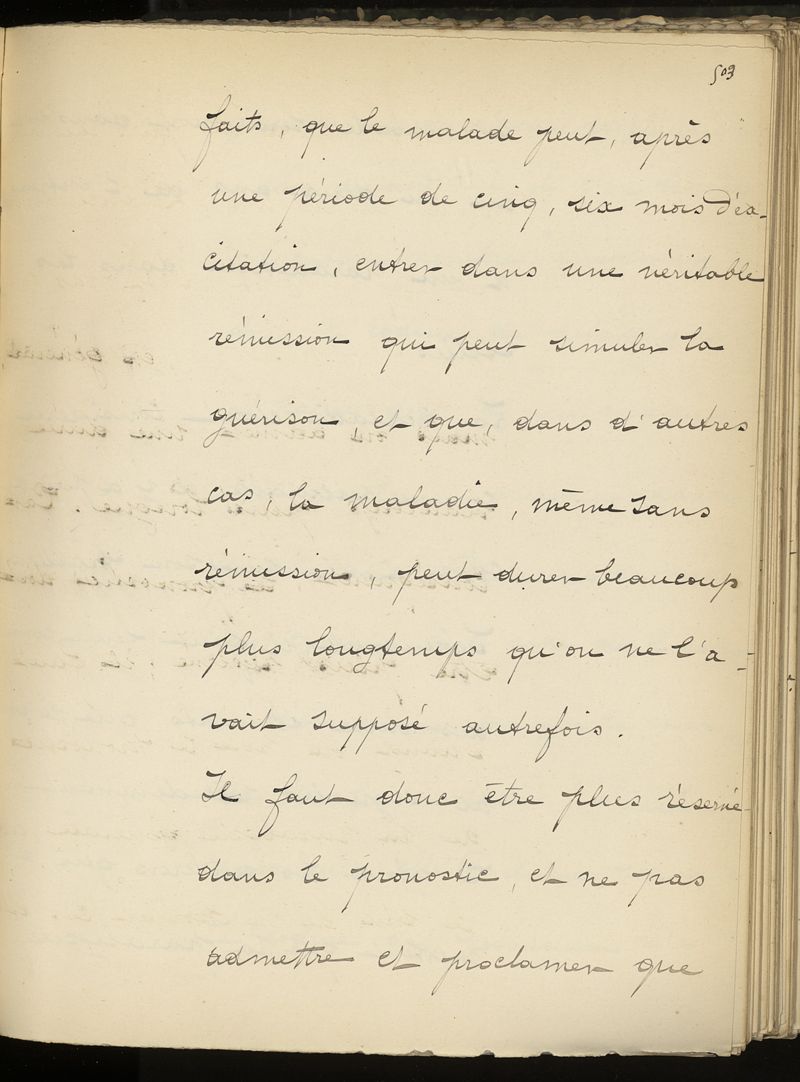 503
faits, que le malade peut, après
une période de cinq, six mois d'ex-
citation, entrer dans une véritable
rémission qui peut simuler la
guérison, et que, dans d'autres
cas, la maladie, même sans
rémission, peut durer beaucoup
plus longtemps qu'on ne l'a-
vait supposé autrefois.
Il faut donc être plus réservé
dans le pronostic, et ne pas
admettre et proclamer que